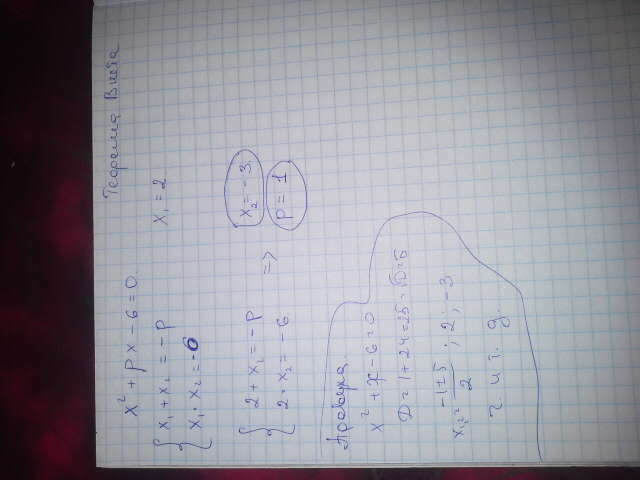 Теорема Виета
x² + px - 6 = 0
{ x₁ + x₂ = -p x₁ = 2
x₁ · x₂ = -6
{ 2 + x₁ = -p { x₂ = -3
2 · x₂ = -6 => p = 1
Проверка.
x² + x - 6 = 0
D = 1 + 24 = 25 √D = 5
x₁,₂ = (-1 ± 5) / 2 ; 2 ; -3
ч. и т. д.